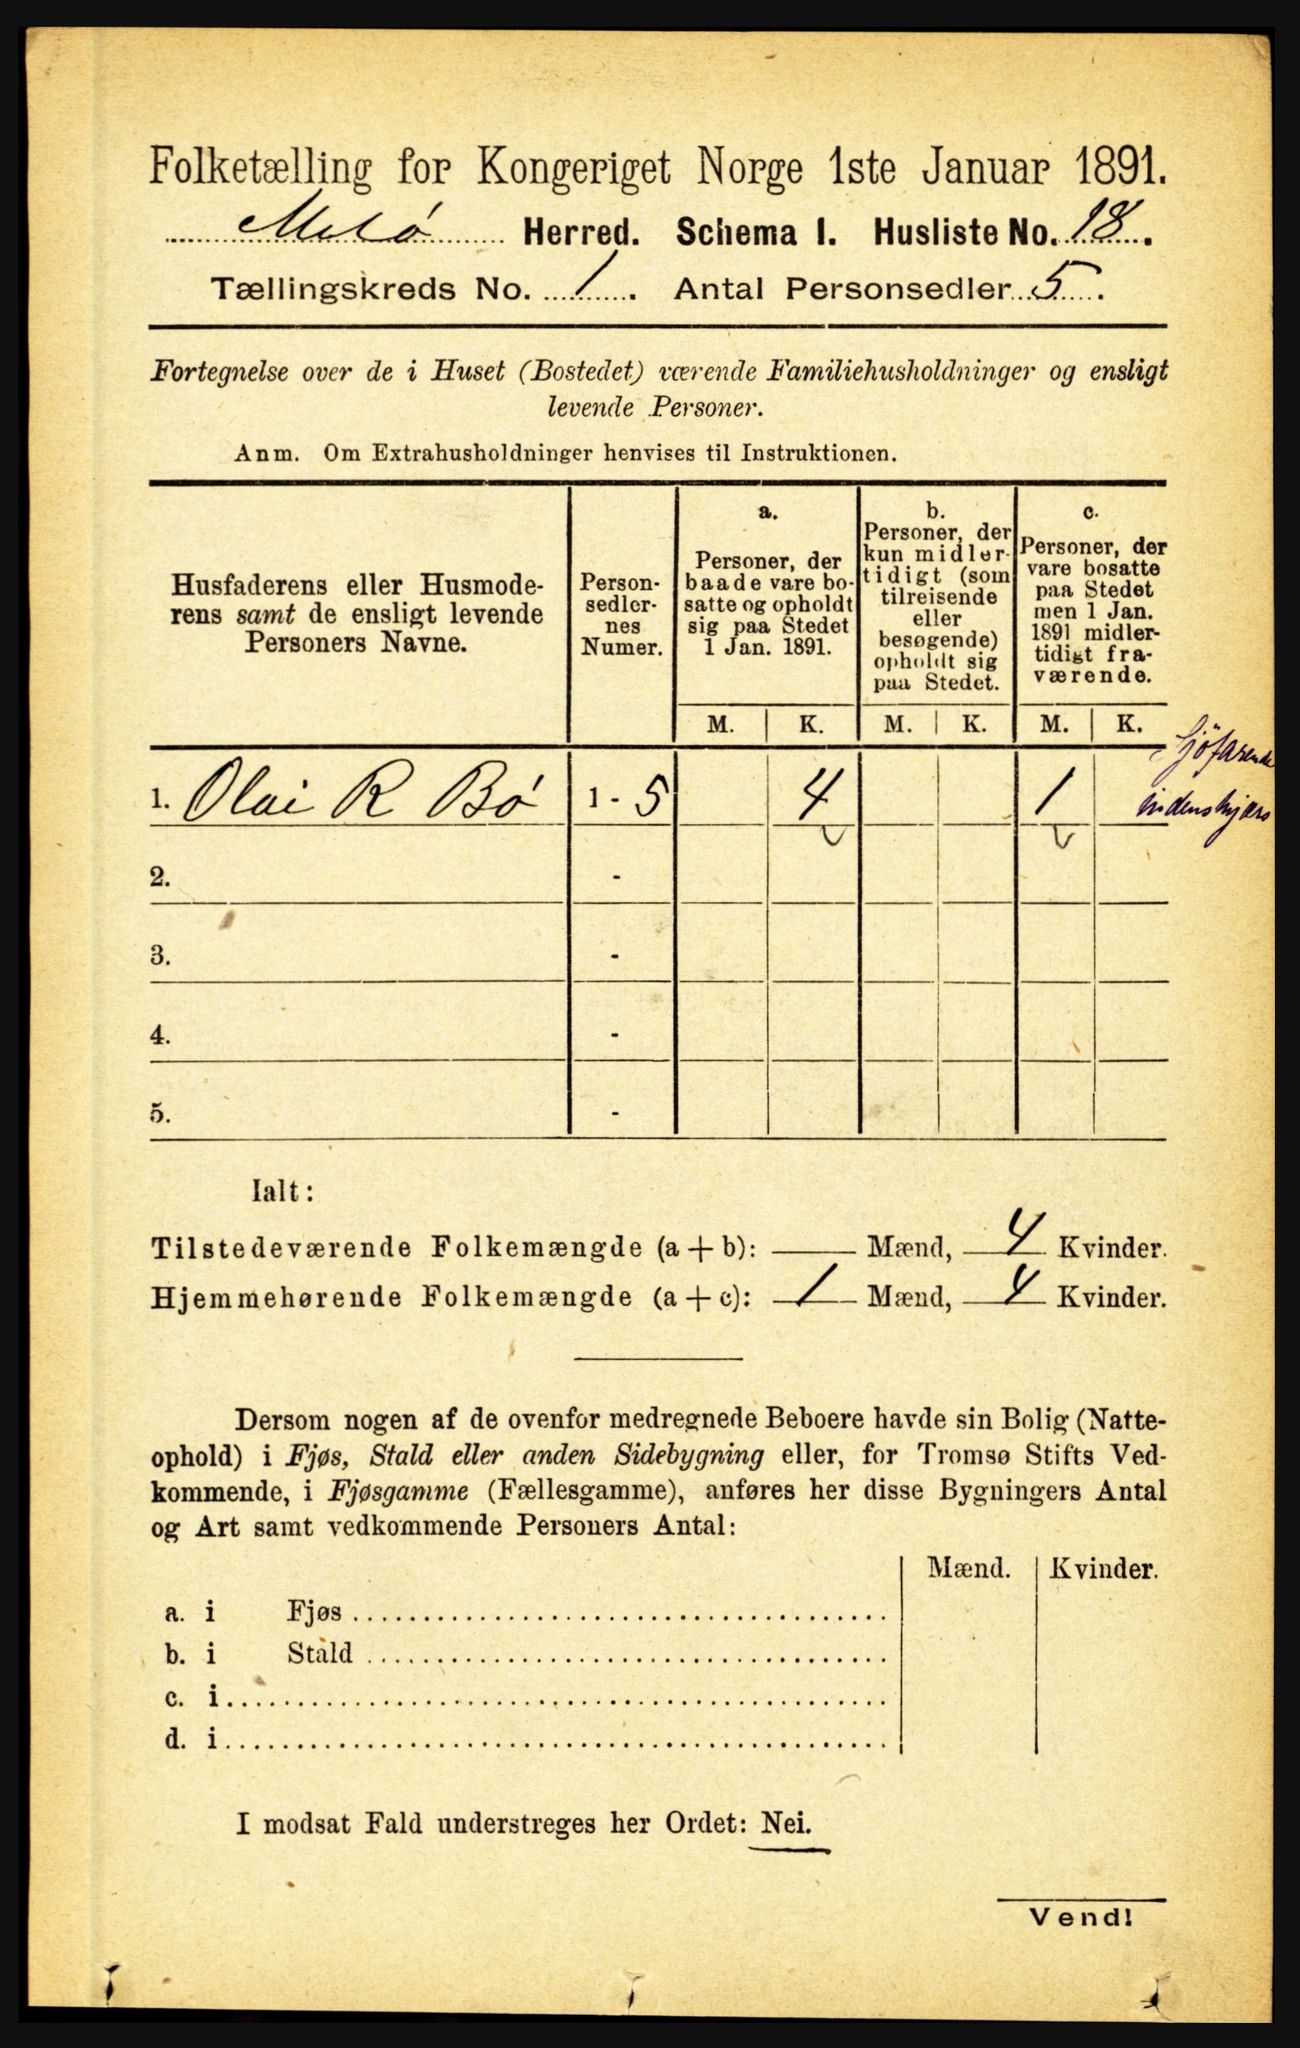 Folketælling for Kongeriget Norge 1ste Januar 1891.
Melø Herred. Schema I. Husliste No. 18.
Tællingskreds No. 1. Antal Personsedler 5.
Fortegnelse over de i Huset (Bostedet) værende Familiehusholdninger og ensligt
levende Personer.
Anm. Om Extrahusholdninger henvises til Instruktionen.
Husfaderens eller Husmode-
rens samt de ensligt levende
Personers Navne.
Person-
sedler-
nes
Numer.
a.
Personer, der
baade vare bo-
satte og opholdt
sig paa Stedet
1 Jan. 1891.
b.
Personer, der
kun midler-
tidigt (som
tilreisende
eller
besøgende)
opholdt sig
paa Stedet.
c.
Personer, der
vare bosatte
paa Stedet
men 1 Jan.
1891 midler-
tidigt fra-
værende.
M. K. M. K. M. K.
Sjöfarende
1. Olai R Bö 1 - 5 4 1 indenskjærs
2. -
3. -
4. -
5. -
Ialt:
Tilstedeværende Folkemængde (a + b): Mænd, 4 Kvinder.
Hjemmehørende Folkemængde (a + c): 1 Mænd, 4 Kvinder.
Dersom nogen af de ovenfor medregnede Beboere havde sin Bolig (Natte-
ophold) i Fjøs, Stald eller anden Sidebygning eller, for Tromsø Stifts Ved-
kommende, i Fjøsgamme (Fællesgamme), anføres her disse Bygningers Antal
og Art samt vedkommende Personers Antal:
Mænd. Kvinder.
a. i Fjøs
b. i Stald
c. i
d. i
I modsat Fald understreges her Ordet: Nei.
Vend!